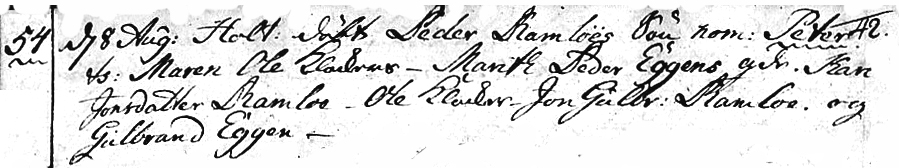 54 d 8 Aug: Holt: døbt Peder Ramloes Søn nom: Peter
ts: Maren Ole Kladens - Marith Peder Eggens gdr. Kari
Jonsdatter Ramloe - Ole Kladen - Jon Gulbr: Ramloe. og
Gulbrand Eggen -